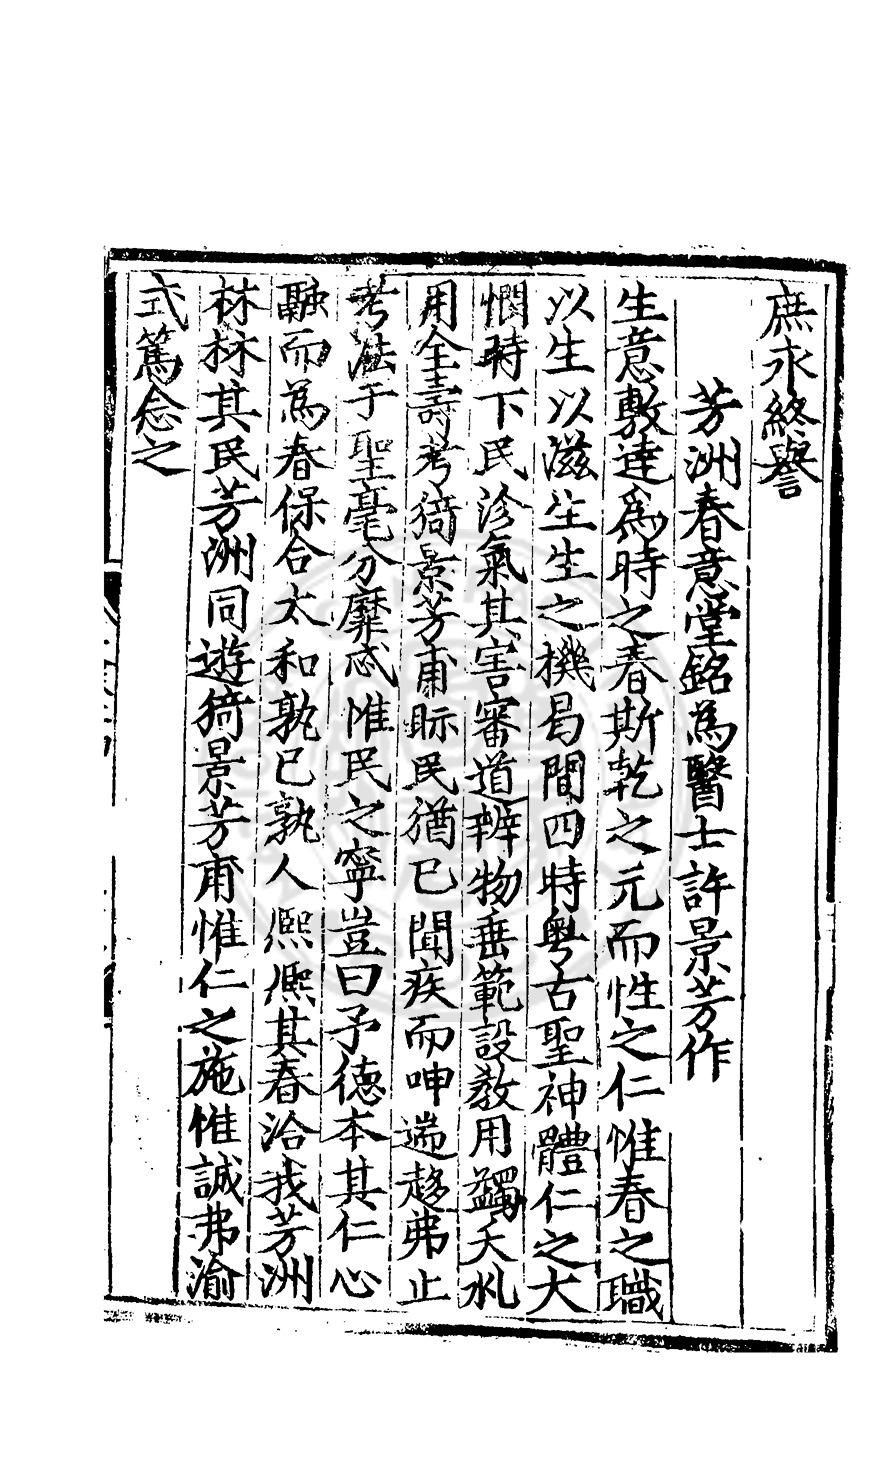 庶永終譽
芳洲春意堂銘為醫士許景芳作
生意敷達為時之春斯乾之元而性之仁惟春之職
以生以滋生生之機曷間四時粤古聖神體仁之大
憫時下民沴氣其害審道辨物垂範設教用蠲夭札
用全壽考猗景芳甫眎民猶己聞疾而呻遄趍弗止
考法于聖毫分靡忒惟民之寧豈曰予德本其仁心
融而為春保合太和孰已孰人熈熈其春洽我芳洲
林林其民芳洲同遊猗景芳甫惟仁之施惟誠弗渝
式篤念之